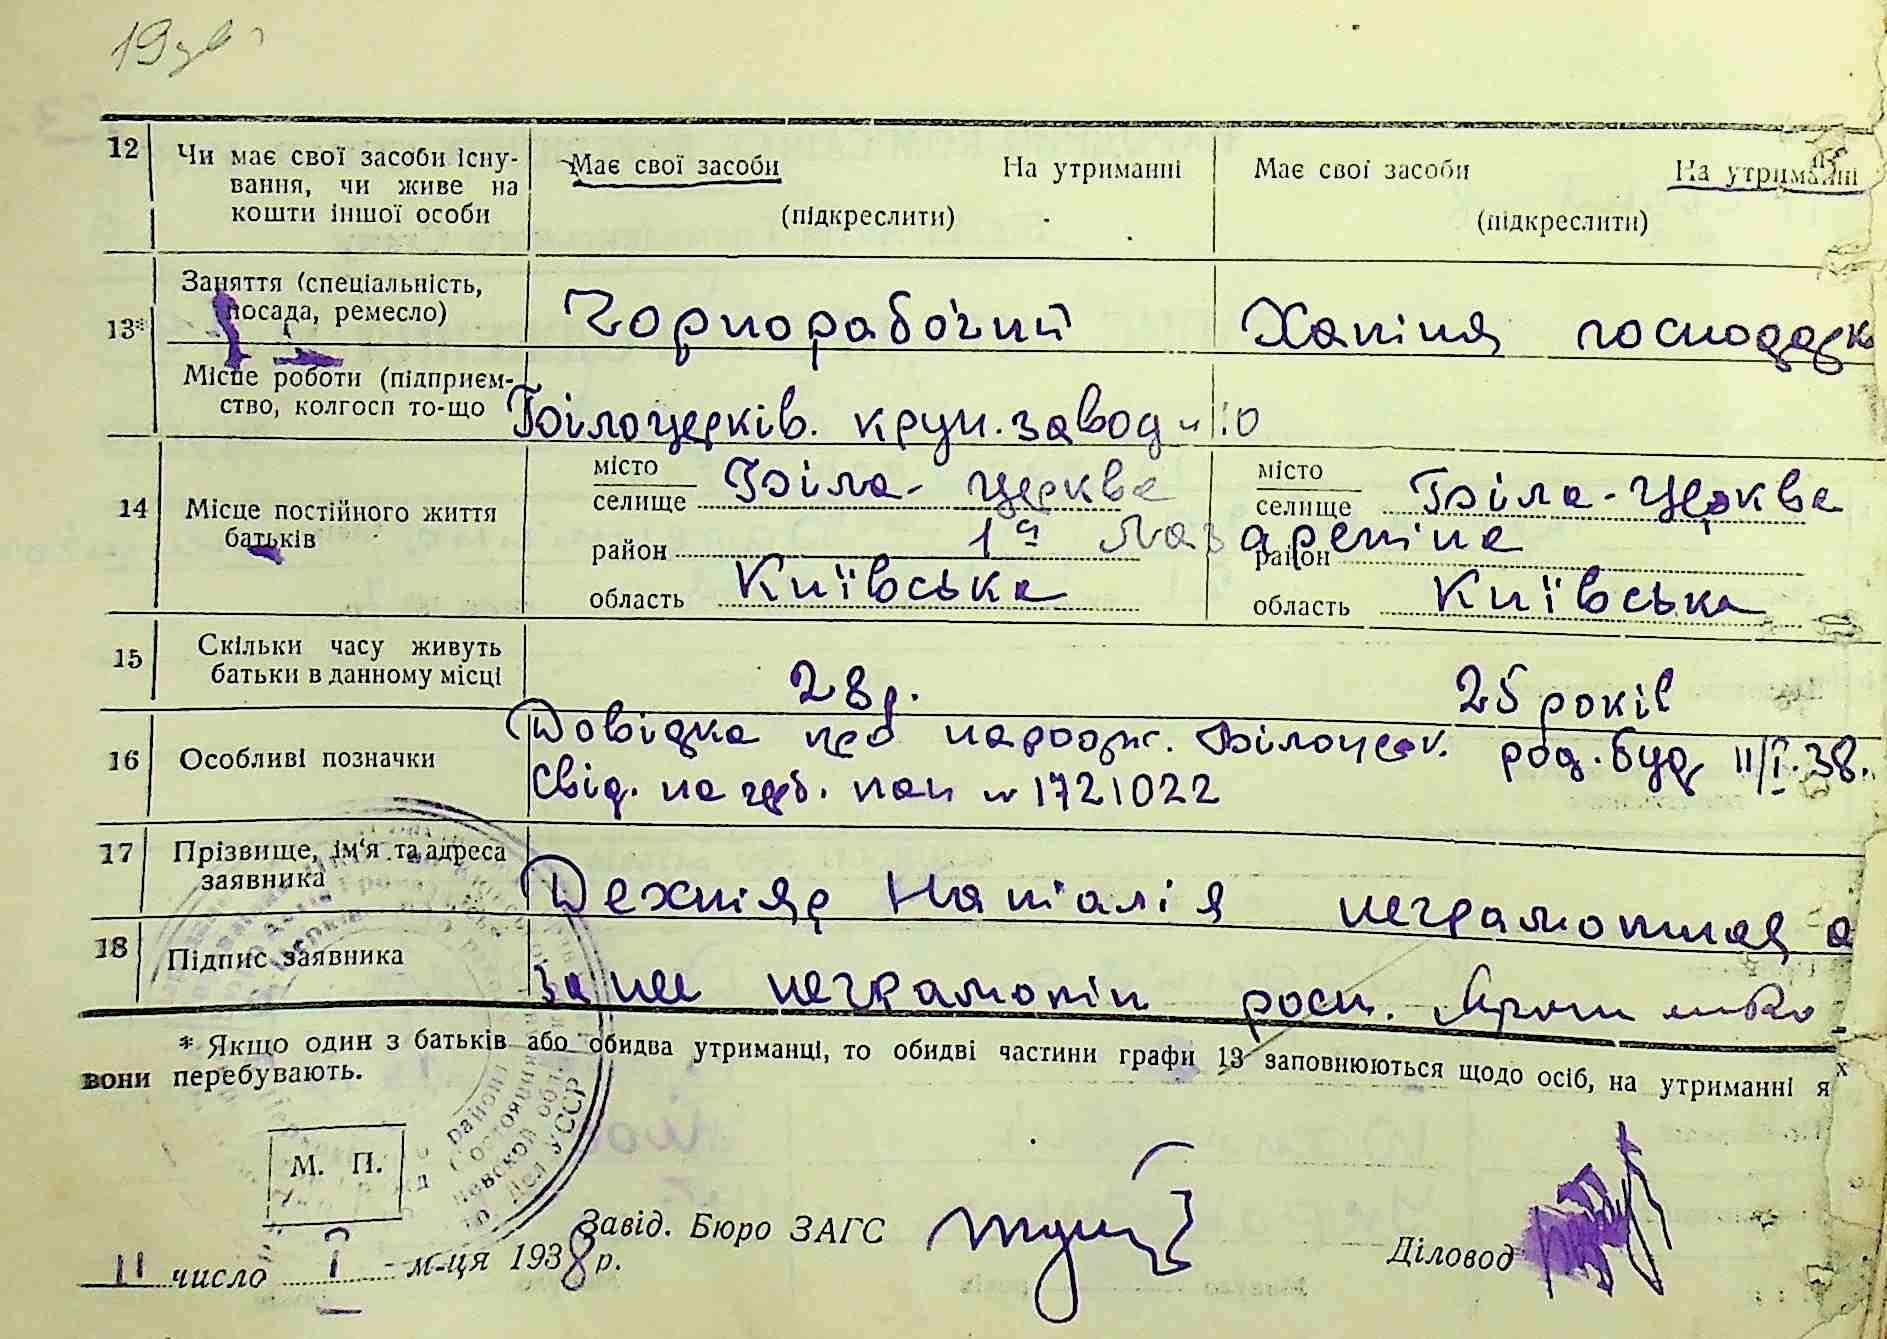 12 Чи має свої засоби існу-
вання, чи живе на
кошти іншої особи
Має свої засоби На утриманні
(підкреслити)
Має свої засоби На утриманні
(підкреслити)
13* Заняття (спеціальність,
посада, ремесло)
Чорнорабочий
Хатня господарк
Місце роботи (підприєм-
ство, колгосп то-що
Білоцерків. круп. завод
14 Місце постійного життя
батьків
місто
селище Біла-церква
район 1а
область Київська
місто
селище Біла-Церква
район
область Київська
15 Скільки часу живуть
батьки в данному місці
28 р.
25 років
16 Особливі позначки
Довідка про народж. Білоцерк. род. буд. 11/I.38.
Свід. на
1721022
17 Прізвище, ім'я та адреса
заявника
Дехтяр Наталія неграмотная а
18 Підпис заявника
за неї неграмотн росп.
* Якщо один з батьків або обидва утриманці, то обидві частини графи 13 заповнюються щодо осіб, на утриманні я
вони перебувають.
М. П.
Завід. Бюро ЗАГС
Діловод
11 число I м-ця 1938 р.